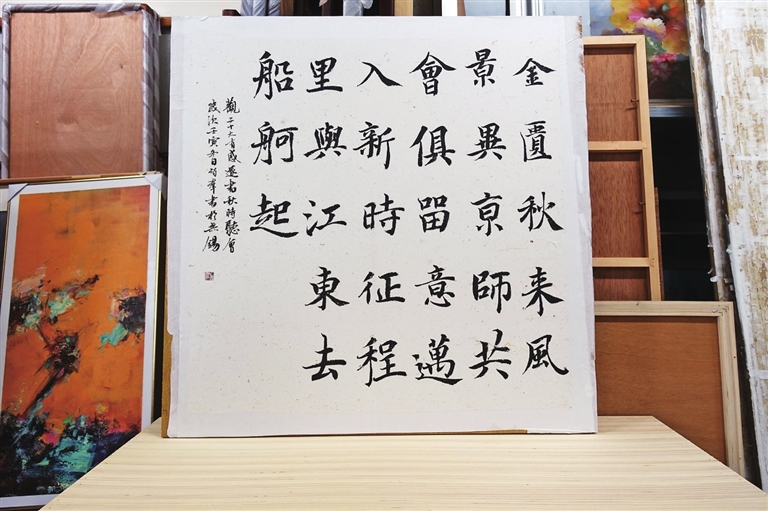 金匱秋来風
景異京師共
會俱留意邁
入新時征程
里與江東去
船舸起
觀二十大有感 書秋時聽會
歲次壬寅冬日 書於無錫